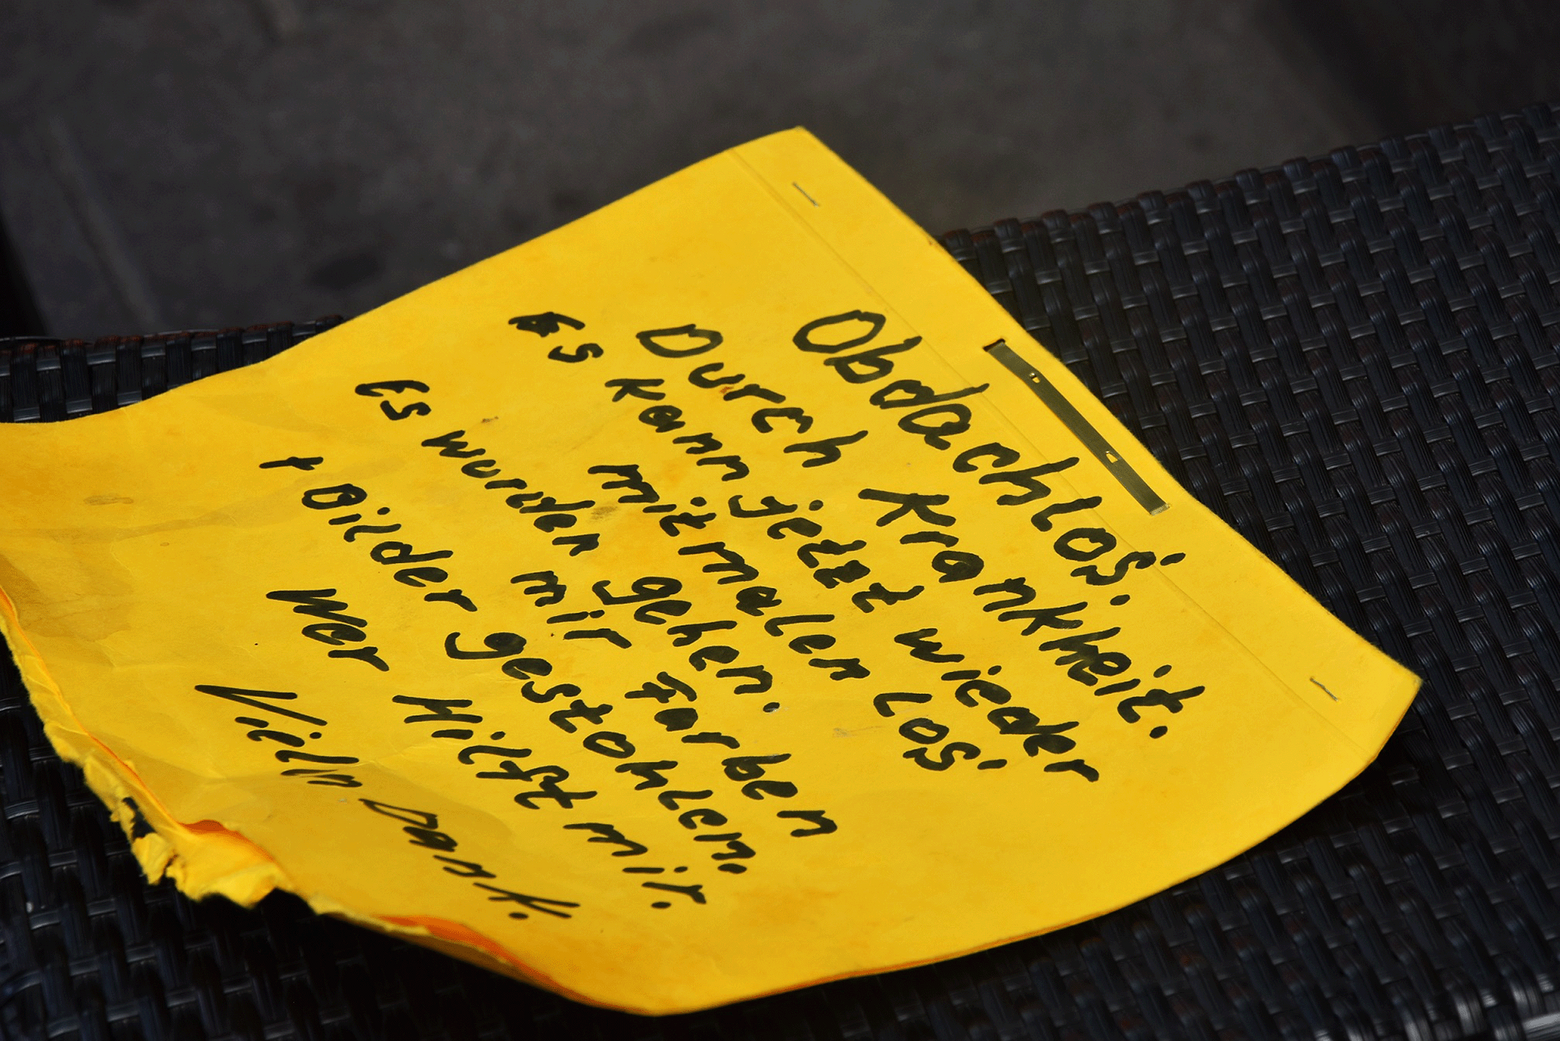 Obdachlos.
Durch Krankheit.
Es kann jetzt wieder
mit malen los
gehen.
Es wurden mir Farben
+ Bilder gestohlen.
Wer Hilft mir.
Vieln Dank.